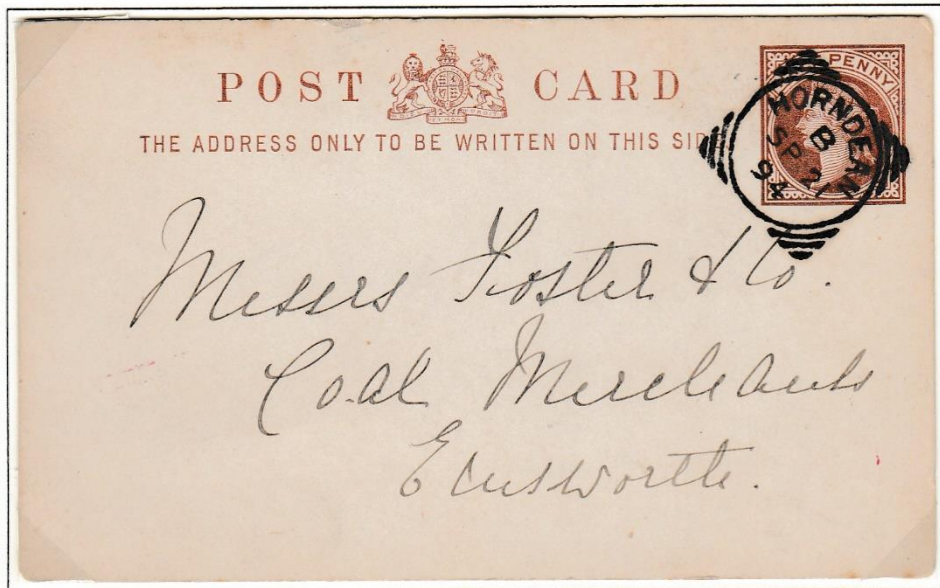 POST CARD
THE ADDRESS ONLY TO BE WRITTEN ON THIS SID
PENNY
HORNDEAN
B
SP 21
94
Messrs Foster & Co.
Coal Merchants
Emsworth.